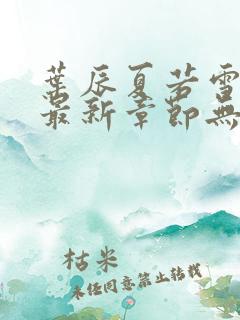 葉辰夏若雪
最新章節無
枯米
未经同意禁止转载